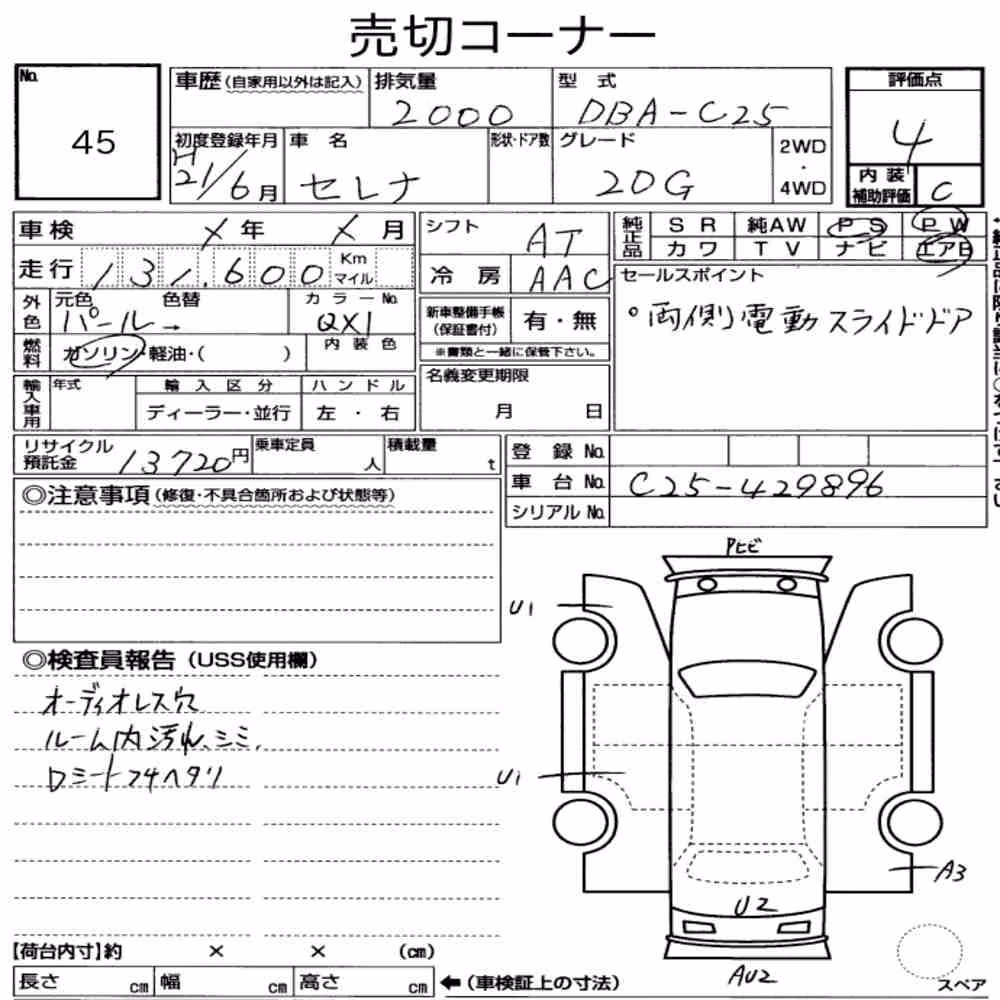 売切コーナー
No. 45
車歴(自家用以外は記入) 排気量 2000 型式 DBA-C25
評価点 4
初度登録年月 H21/6月 車名 セレナ 形状・ドア数 グレード 20G 2WD・4WD
内装補助評価 C
車検 X年 X月
走行 131,600 Km マイル
シフト AT
冷房 AAC
純正品 SR 純AW PS PW
カワ TV ナビ エアB
セールスポイント
°両側電動スライドドア
外色 元色 パール→ 色替 カラーNo. QX1
内装色
燃料 ガソリン・軽油・( )
新車整備手帳(保証書付) 有・無
※書類と一緒に保管下さい。
輸入車用 年式 輸入区分 ハンドル
ディーラー・並行 左・右
名義変更期限
月 日
リサイクル預託金 13720円 乗車定員 人 積載量 t
登録No.
車台No. C25-429896
シリアルNo.
◎注意事項(修復・不具合箇所および状態等)
◎検査員報告(USS使用欄)
オーディオレス穴
ルーム内汚れ、シミ、
Dシートフチヘタリ
Pヒビ
U1
U1
A3
U2
AU2
スペア
【荷台内寸】約 × × (cm)
長さ cm 幅 cm 高さ cm ←(車検証上の寸法)